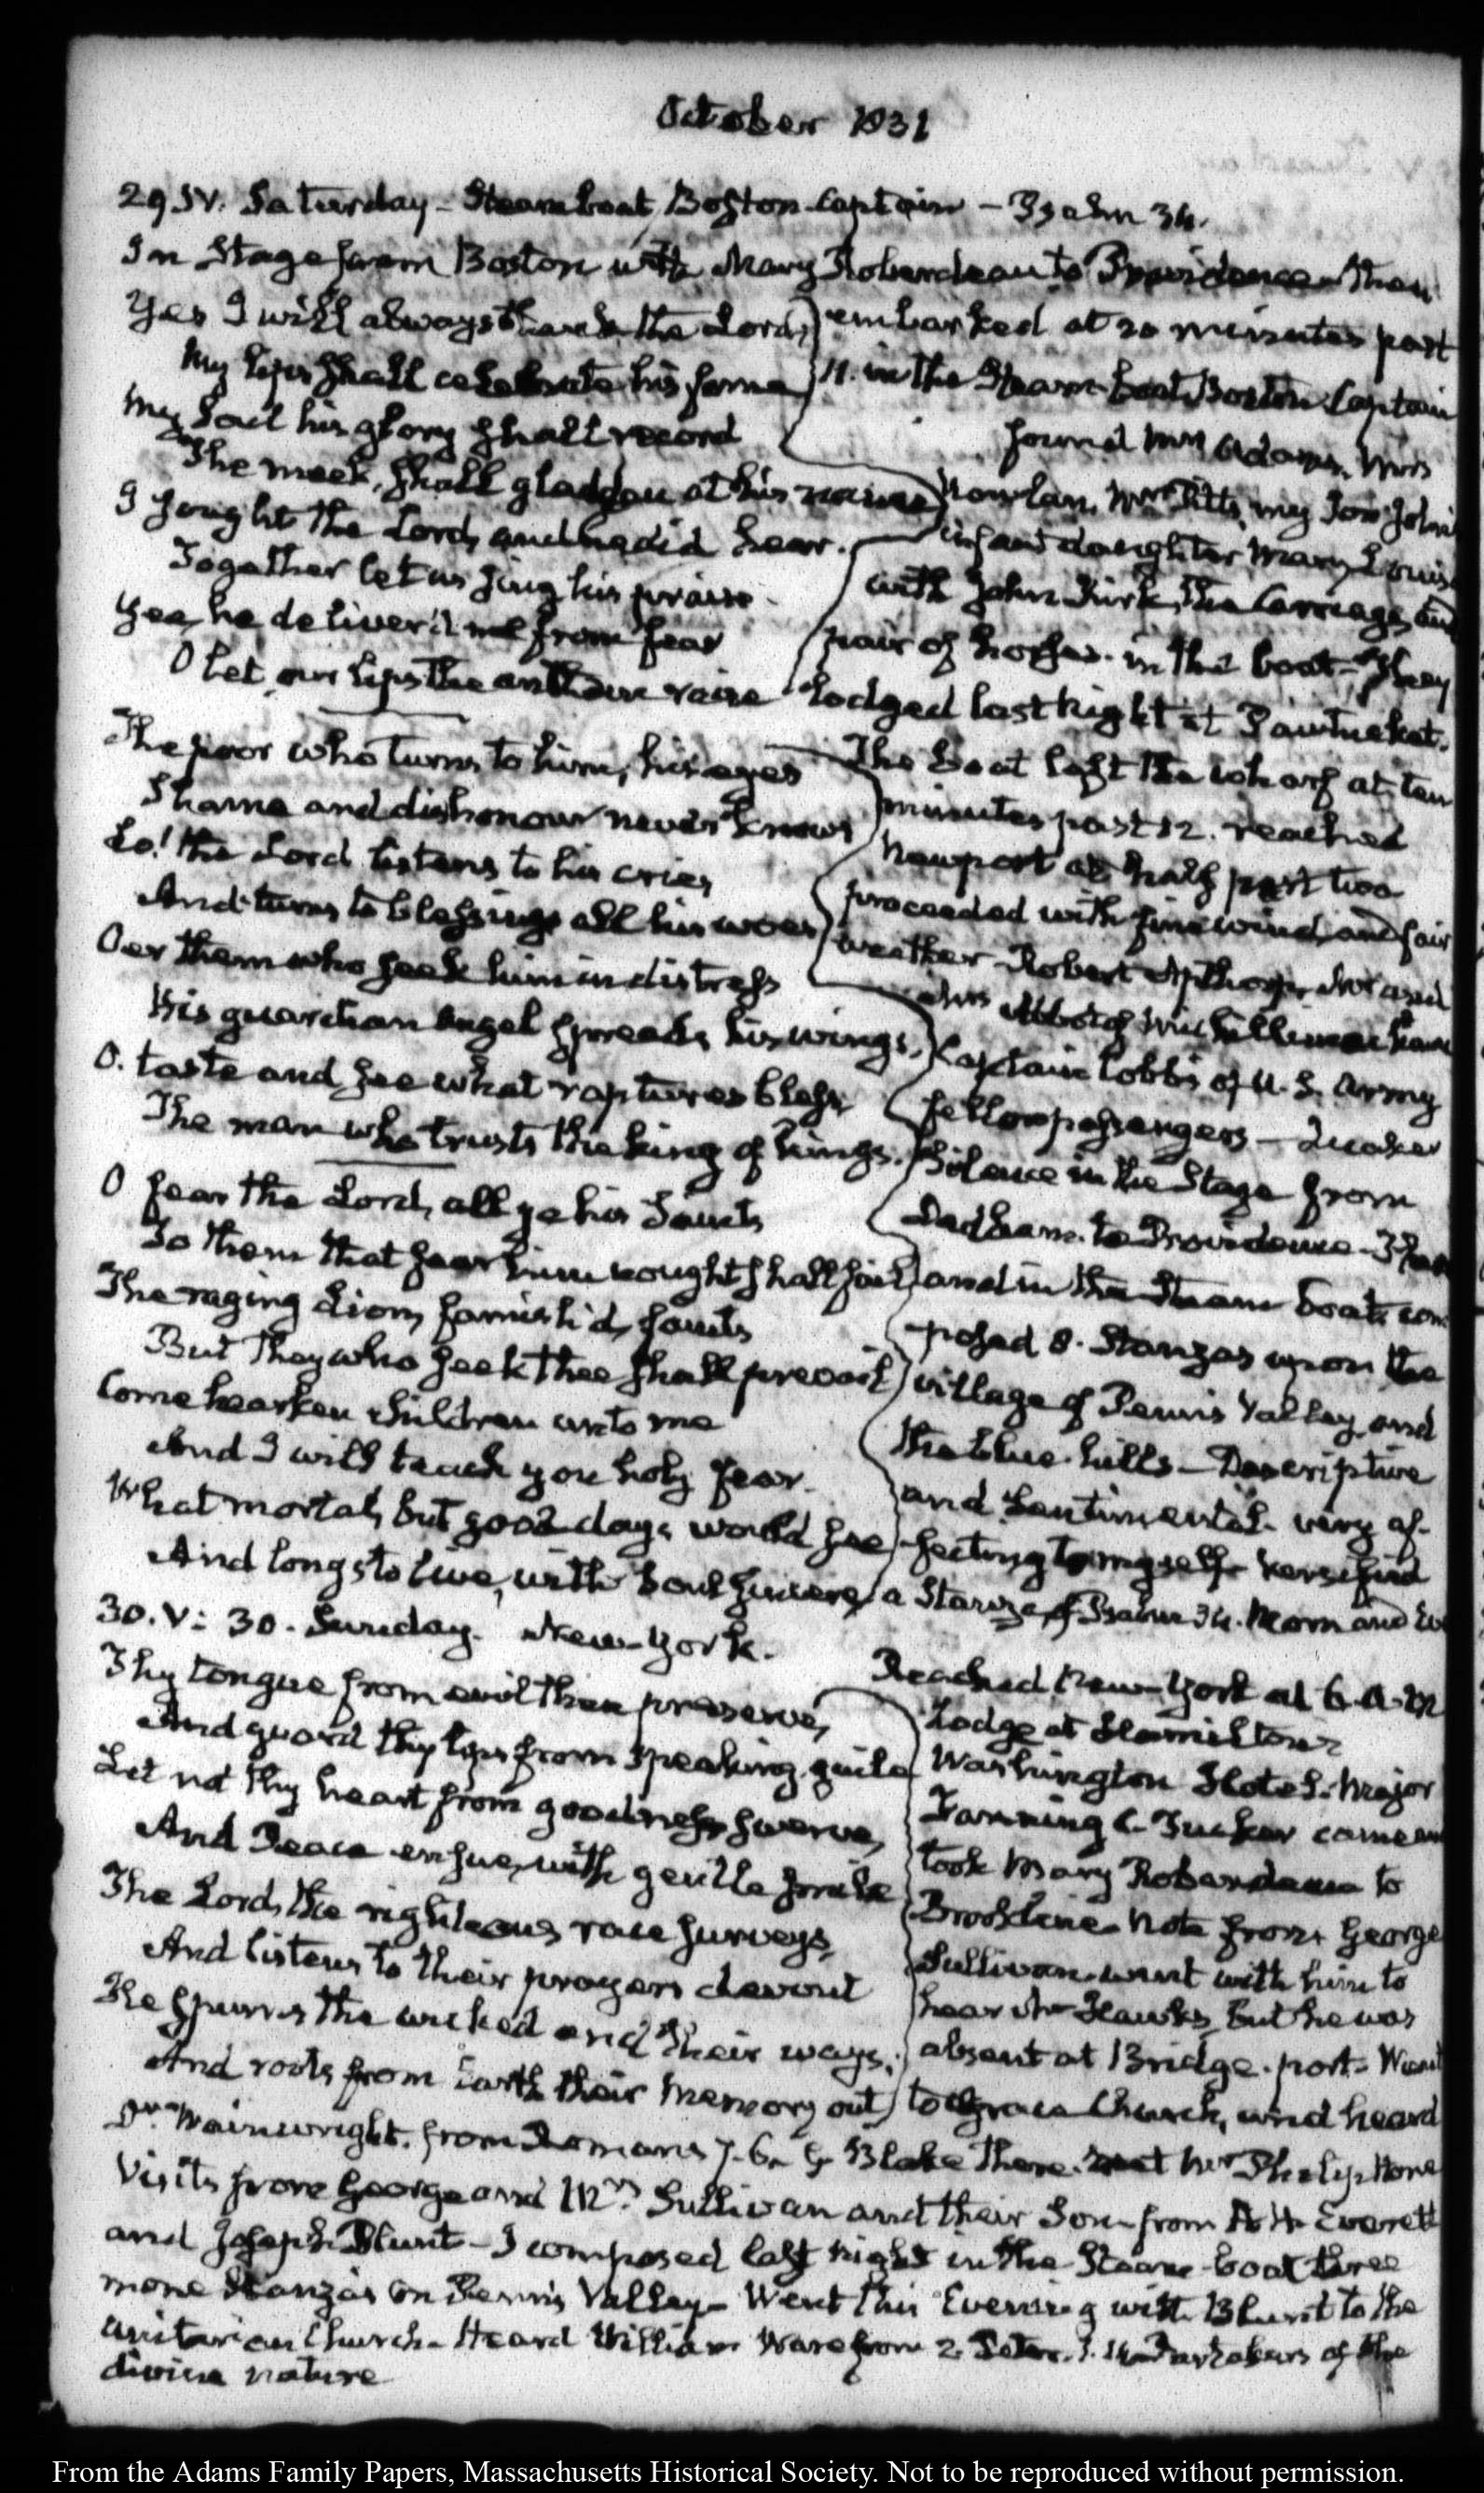 October 1831
29 IV. Saturday - Steamboat Boston Captain - Psalm 34.
In Stage from Boston with Mary Roberdeau to Providence - then
Yes I will always thank the Lord,
My lips shall celebrate his fame
My Soul his glory shall record
The meek, shall gladden at his name
I sought the Lord, and he did hear.
Together let us sing his praise.
Yea, he deliver'd me from fear
O let our lips the anthem raise
The poor who turns to him, his eyes
Shame and dishonour never knows
Lo! the Lord listens to his cries
And turns to blessings all his woes
Oer them who seek him in distress
His guardian Angel spreads his wings.
O. taste and see what raptures bless
The man who trusts the king of kings.
O fear the Lord, all ye his Saints
To them that fear him nought shall fail
The raging Lion, famish'd, faints
But They who seek thee shall prevail
Come hearken children unto me
And I will teach you holy fear.
What mortal, but good days would see
And longs to live, with Soul sincere
embarked at 20 minutes past
11. in the Steam-boat Boston Captain
found Mrs Adams, Mrs
Nowlan, Mrs Pitts, my Son John's
infant daughter Mary Louisa
with John Kirk, the Carriage, and
pair of horses. in the boat - They
lodged last night at Pawtucket.
The boat left the wharf at ten
minutes past 12. reached
Newport at half past two
proceeded with fine wind, and fair
weather - Robert Apthorp, Mr and
Mrs Abbot of Michillimackinac
Captain Cobbs of U.S. Army
fellow passengers - Quaker
Silence in the Stage from
Dedham to Providence -
and in the Steam boat com
posed 8. Stanzas upon the
village of Penns Valley, and
the blue hills - Descriptive
and Sentimental. very af-
fecting to myself - Versified
a Stanza of Psalm 34. Morn and Ev
30. V: 30. Sunday. New-York.
Thy tongue from evil then preserve,
And guard thy lips from speaking guile
Let not thy heart from goodness swerve,
And Peace ensue, with gentle smile
The Lord, the righteous race surveys,
And listens to their prayers devout
He spurns the wicked and their ways;
And roots from Earth their memory out
Reached New-York at 6. A.M
Lodge at Hamilton's
Washington Hotel. Major
Fanning C. Tucker came and
took Mary Roberdeau to
Brookline - Note from George
Sullivan. went with him to
hear Mr Hawks, but he was
absent at Bridge-port - Went
to Grace Church, and heard
Dr. Wainwright. from Romans 7. 6. G Blake there. met Mr Philip Hone
Visits from George and Mrs. Sullivan and their Son - from A. H. Everett
and Joseph Blunt - I composed last night in the Steam-boat three
more Stanzas on Penns Valley - Went this Evening with Blunt to the
Unitarian Church - Heard William Ware from 2. Peter. 1. 4. Partakers of the
divine nature
From the Adams Family Papers, Massachusetts Historical Society. Not to be reproduced without permission.